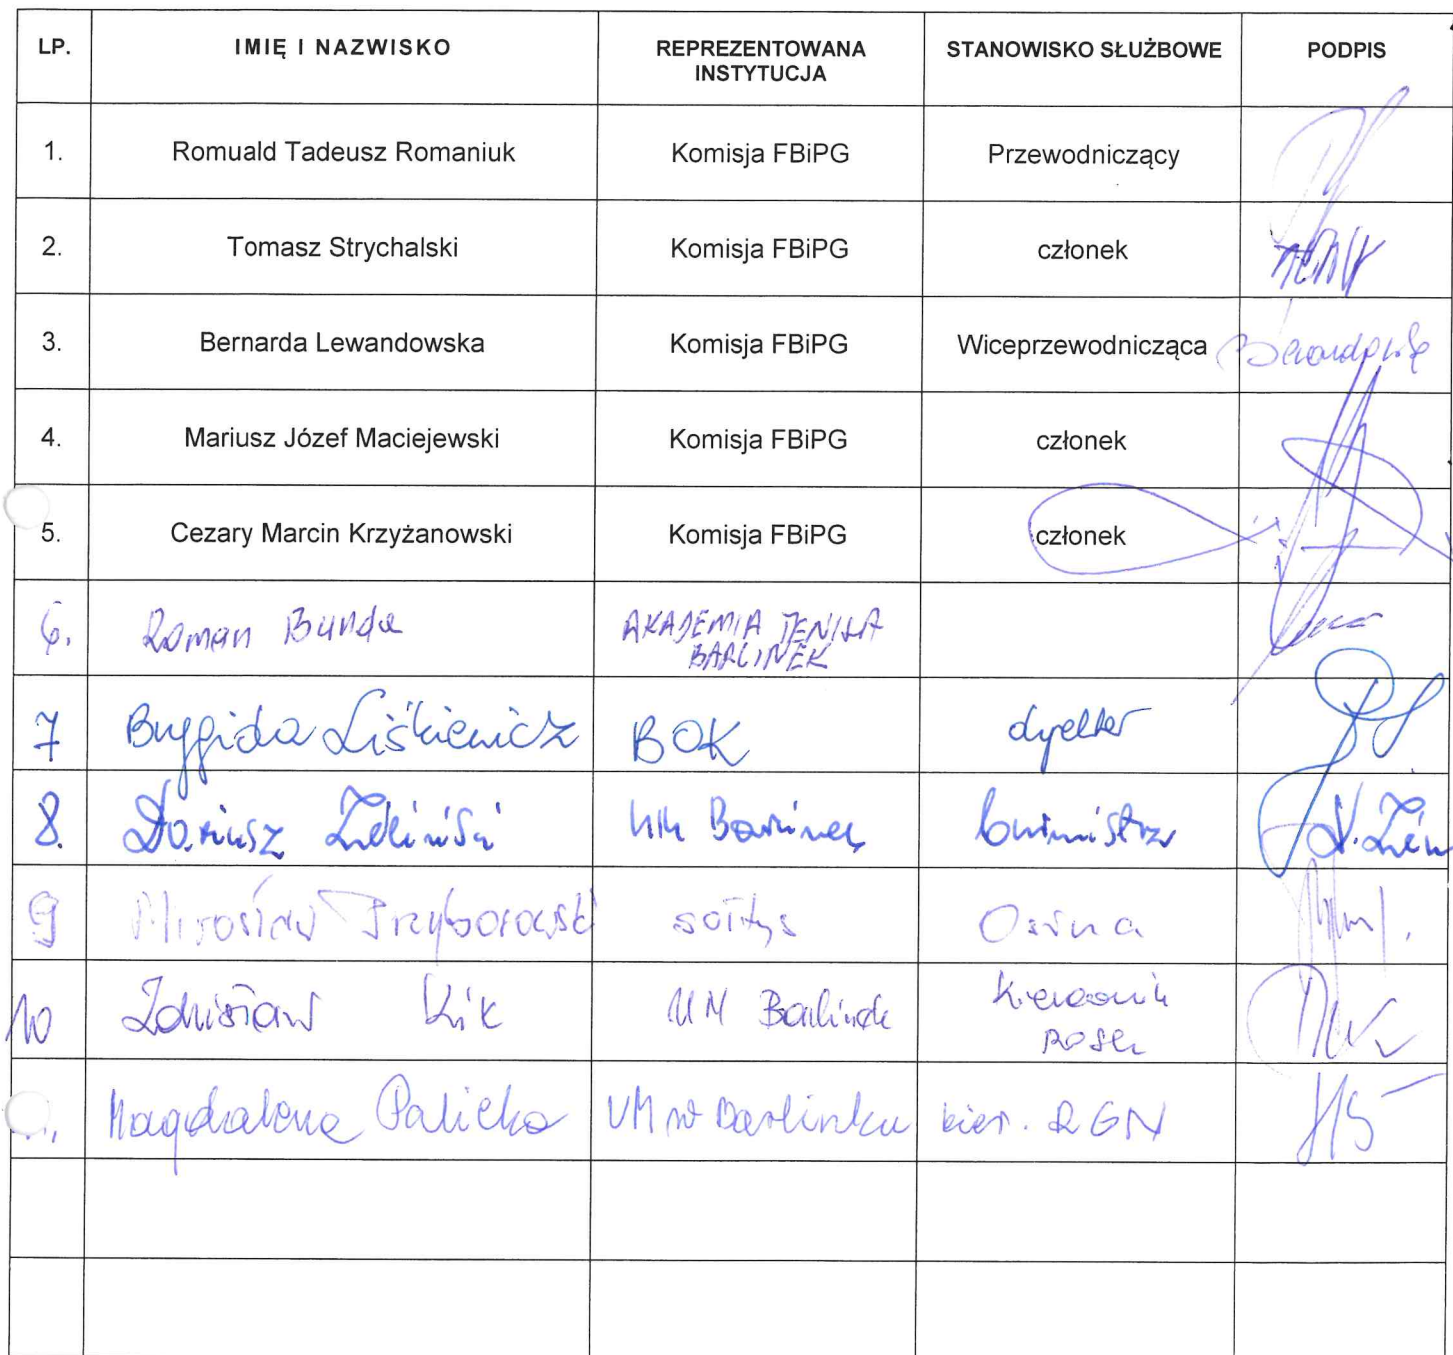 LP. IMIĘ I NAZWISKO REPREZENTOWANA INSTYTUCJA STANOWISKO SŁUŻBOWE PODPIS
1. Romuald Tadeusz Romaniuk Komisja FBiPG Przewodniczący
2. Tomasz Strychalski Komisja FBiPG członek
3. Bernarda Lewandowska Komisja FBiPG Wiceprzewodnicząca
4. Mariusz Józef Maciejewski Komisja FBiPG członek
5. Cezary Marcin Krzyżanowski Komisja FBiPG członek
6. Roman Bunda AKADEMIA TENISA BARLINEK
7 Brygida Liśkiewicz BOK dyrektor
8. Dariusz Zieliński UM Barlinek burmistrz D. Zieliń
9 Mirosław Przyborowski sołtys Osina
10 Zdzisław Kik UM Barlinek Kierownik
11. Magdalena Palicka UM w Barlinku kier. RGN